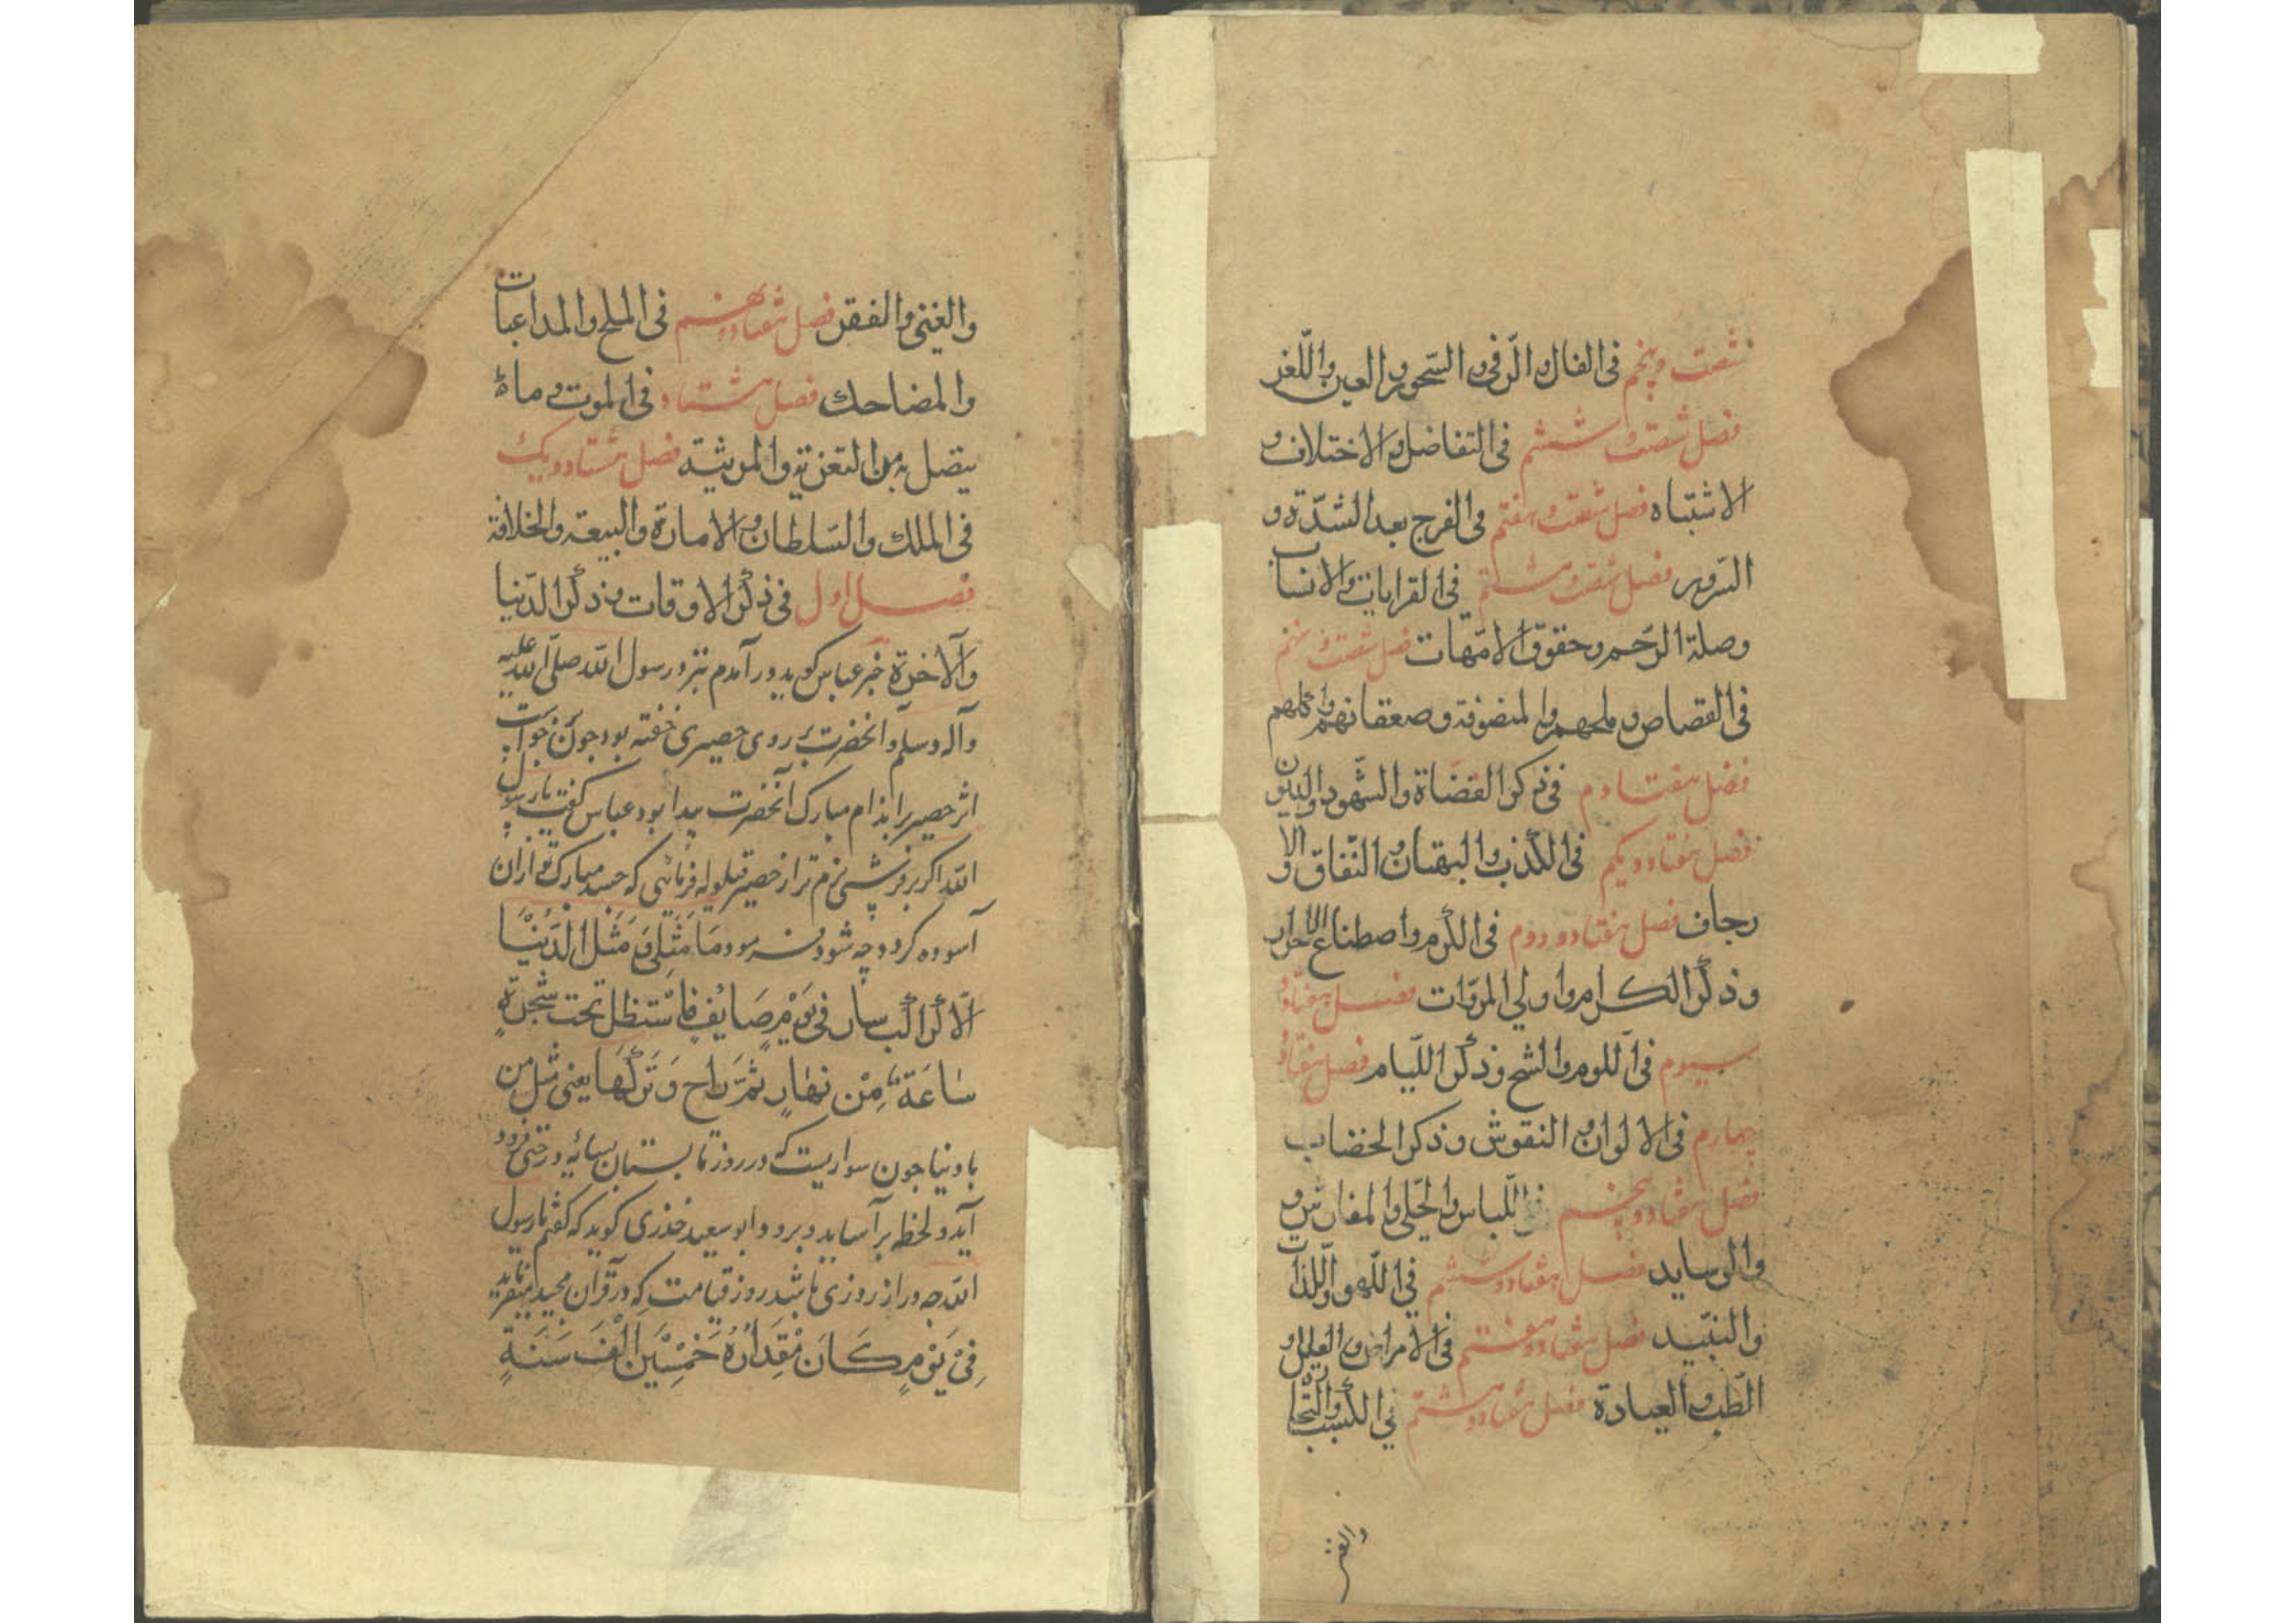 شصت و پنجم فی الفال و الرّقی و السّحر و العین و اللّغز
فصل شصت و ششم فی التفاضل و الاختلاف و
الاشتباه فصل شصت و هفتم فی الفرج بعد الشدّة و
السّرور فصل شصت و هشتم فی القرابات و الانساب
وصلة الرّحم و حقوق الامّهات فصل شصت و نهم
فی القصاص و ملحهم و المتصوّفة و صعقاتهم و اکلهم
فصل هفتادم فی ذکر القضاة و الشّهود و الدیون
فصل هفتاد و یکم فی الکذب و البهتان و النّفاق و الا
رجاف فصل هفتاد و دوم فی الکرم و اصطناع الاحرار
و ذکر الکرام و اولی المروّات فصل هفتاد و
سیوم فی اللوم و الشح و ذکر اللّیام فصل هفتاد و
چهارم فی الالوان و النقوش و ذکر الخضاب
فصل هفتاد و پنجم فی اللّباس و الحلی و المفارش و
والوساید فصل هفتاد و ششم فی اللّهو و اللّذات
والنبّیذ فصل هفتاد و هفتم فی الامراض و العلل و
الطّب و العیادة فصل هفتاد و هشتم فی الکسب و التّجارة
والغنی و الفقر فصل هفتاد و نهم فی الملح و المداعبات
والمضاحك فصل هشتاد فی الموت و ما
یتصل به من التعزیة و المرثیة فصل هشتاد و یک
فی الملك و السّلطان و الامارة و البیعة و الخلافة
فصل اول فی ذکر الاوقات و ذکر الدّنیا
والآخرة خبر عباس کوید در آمدم بنزد رسول الله صلّی الله علیه
وآله وسلم و آنحضرت بر روی حصیری خفته بود چون
اثر حصیر بر اندام مبارک آنحضرت پیدا بود عباس کفت یا رسول
الله اکر بر فرشی نرم تر از حصیر قیلوله فرمائی که جسد مبارک تو از آن
آسوده کردد چه شود فرمود مَا مَثَلِی وَ مَثَلُ الدُّنْیَا
الّا کراکب سار فی یَوْمٍ صَایفٍ فَاسْتظل تحت شجرةٍ
سَاعَةً مِنْ نهَارٍ ثمَّ رَاح وَ تَرَکَهَا یعنی مثل من
با دنیا چون سواریست که در روز تابستان بسایه درختی فرود
آید و لحظه بر آساید و برود و ابو سعید خذری کوید که کفتم یا رسول
الله چه دراز روزی باشد روز قیامت که در قرآن مجید میفرماید
فِیْ یَوْمٍ کَانَ مِقْدَارُهُ خَمْسِیْنَ اَلْفَ سَنَةٍ